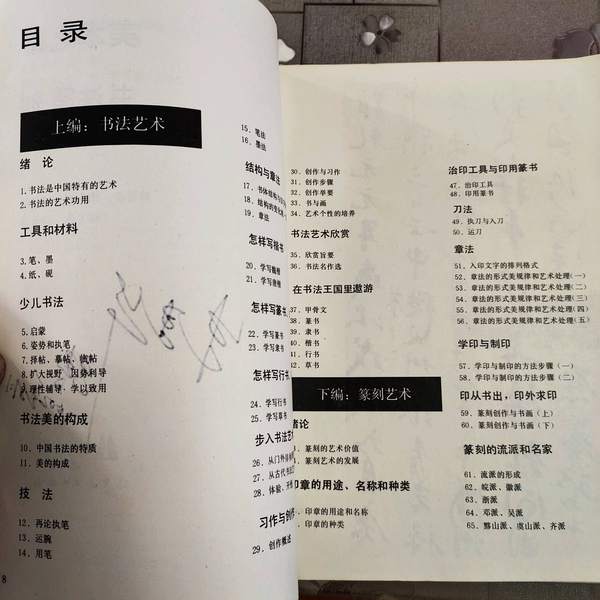 目 录
上编：书法艺术
绪 论
1. 书法是中国特有的艺术
2. 书法的艺术功用
工具和材料
3. 笔、墨
4. 纸、砚
少儿书法
5. 启蒙
6. 姿势和执笔
7. 择帖、摹帖、临帖
8. 扩大视野 因势利导
9. 理性辅导、学以致用
书法美的构成
10. 中国书法的特质
11. 美的构成
技 法
12. 再论执笔
13. 运腕
14. 用笔
8
15. 笔法
16. 墨法
结构与章法
17. 书体结构与
18. 结构的变化
19. 章法
怎样写楷书
20. 学写魏楷
21. 学写唐楷
怎样写篆书
22. 学写篆书
23. 学写隶书
怎样写行书
24. 学写行书
25. 学写草书
步入书法艺
26. 从门外
27. 从古代书
28. 体验、
习作与创作
29. 创作概述
30. 创作与习作
31. 创作步骤
32. 创作举要
33. 书与画
34. 艺术个性的培养
书法艺术欣赏
35. 欣赏旨要
36. 书法名作选
在书法王国里遨游
37. 甲骨文
38. 篆书
39. 隶书
40. 楷书
41. 行书
42. 草书
下编：篆刻艺术
绪论
43. 篆刻的艺术价值
44. 篆刻艺术的发展
印章的用途、名称和种类
45. 印章的用途和名称
46. 印章的种类
治印工具与印用篆书
47. 治印工具
48. 印用篆书
刀法
49. 执刀与入刀
50. 运刀
章法
51. 入印文字的排列格式
52. 章法的形式美规律和艺术处理(一)
53. 章法的形式美规律和艺术处理(二)
54. 章法的形式美规律和艺术处理(三)
55. 章法的形式美规律和艺术处理(四)
56. 章法的形式美规律和艺术处理(五)
学印与制印
57. 学印与制印的方法步骤（一）
58. 学印与制印的方法步骤（二）
印从书出，印外求印
59. 篆刻创作与书画（上）
60. 篆刻创作与书画（下）
篆刻的流派和名家
61. 流派的形成
62. 皖派、徽派
63. 浙派
64. 邓派、吴派
65. 黟山派、虞山派、齐派